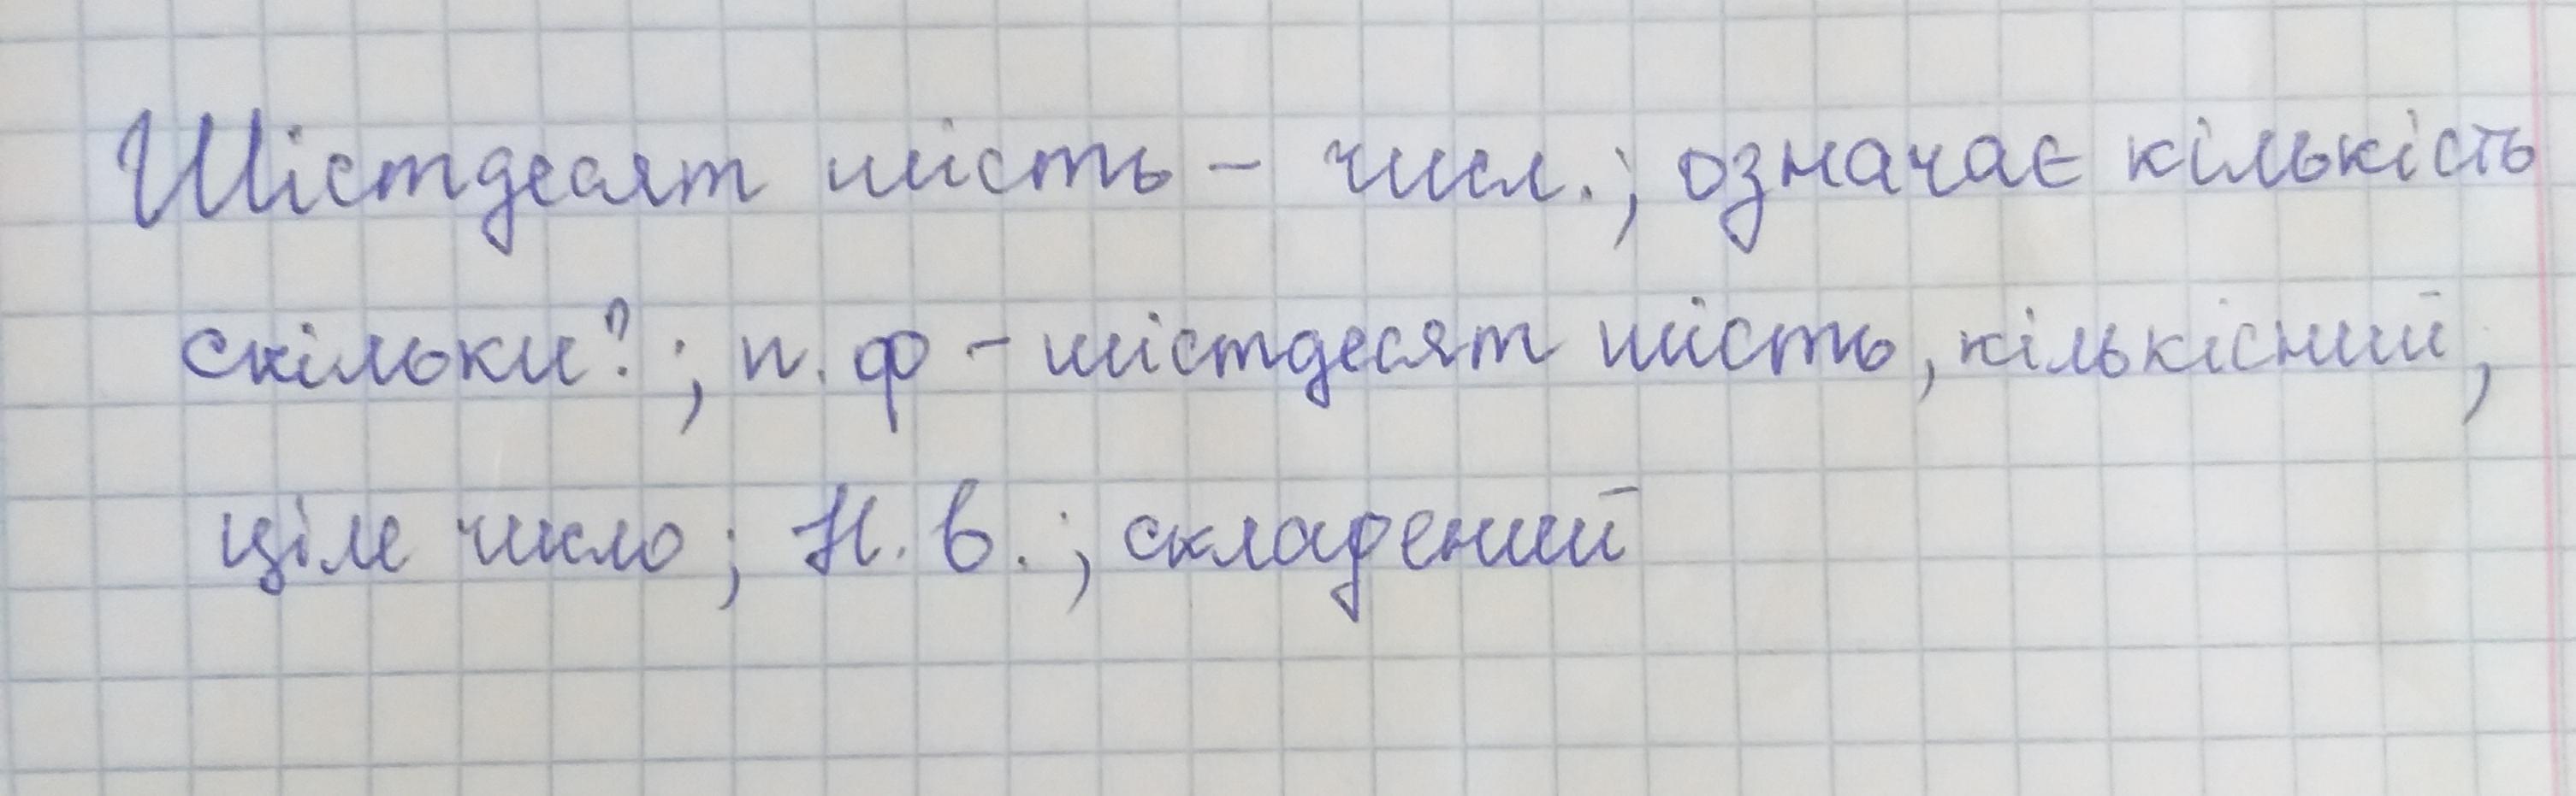 Шістдесят шість - числ.; означає кількість
скільки?; п. ф - шістдесят шість, кількісний;
ціле число; Н. в.; складений